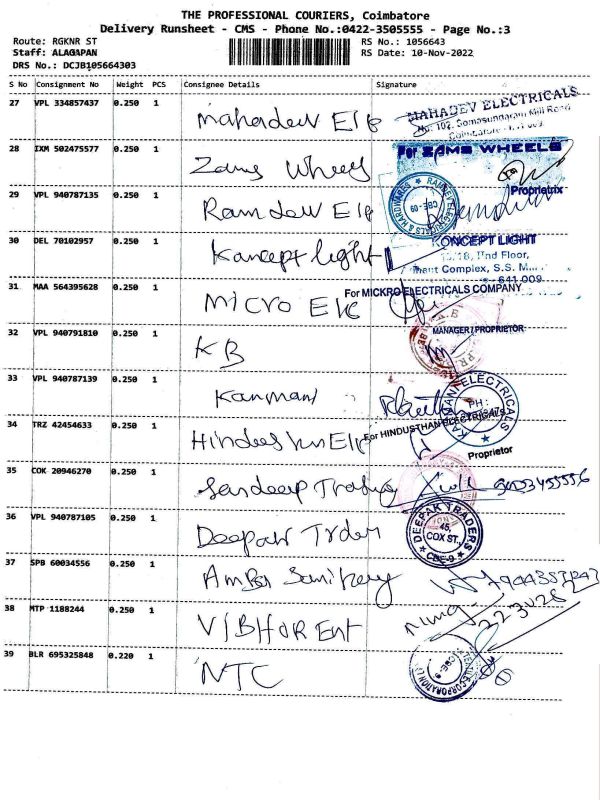 THE PROFESSIONAL COURIERS, Coimbatore
Delivery Runsheet - CMS - Phone No.:0422-3505555 - Page No.:3
Route: RGKNR ST
Staff: ALAGAPAN
DRS No.: DCJB105664303
RS No.: 1056643
RS Date: 10-Nov-2022
S No Consignment No Weight PCS Consignee Details Signature
27 VPL 334857437 0.250 1 Mahadev Ele
MAHADEV ELECTRICALS
No. 102, Somasundaram Mill Road
Coimbatore
28 IXM 502475577 0.250 1 Zams Wheels
For ZAMS WHEELS
Proprietrix
29 VPL 940787135 0.250 1 Ramdev Ele
RAMDEV ELECTRICALS & HARDWARES
CBE-09
30 DEL 70102957 0.250 1 Koncept light
KONCEPT LIGHT
/18, IInd Floor,
Complex, S.S.
641 009
31 MAA 564395628 0.250 1 Micro Ele
For MICKRO ELECTRICALS COMPANY
MANAGER/PROPRIETOR
32 VPL 940791810 0.250 1 KB
33 VPL 940787139 0.250 1 Kanmani
ELECTRICALS
PH :
34 TRZ 42454633 0.250 1 Hindusthan Ele
For HINDUSTHAN ELECTRICALS
Proprietor
35 COK 20946270 0.250 1 Sandeep Trading
36 VPL 940787105 0.250 1 Deepak Trder
DEEPAK TRADERS
45,
COX ST.,
CBE-9
37 SPB 60034556 0.250 1 Amber Sanitery
38 MTP 1188244 0.250 1 VIBHOR Ent
39 BLR 695325848 0.220 1 NTC